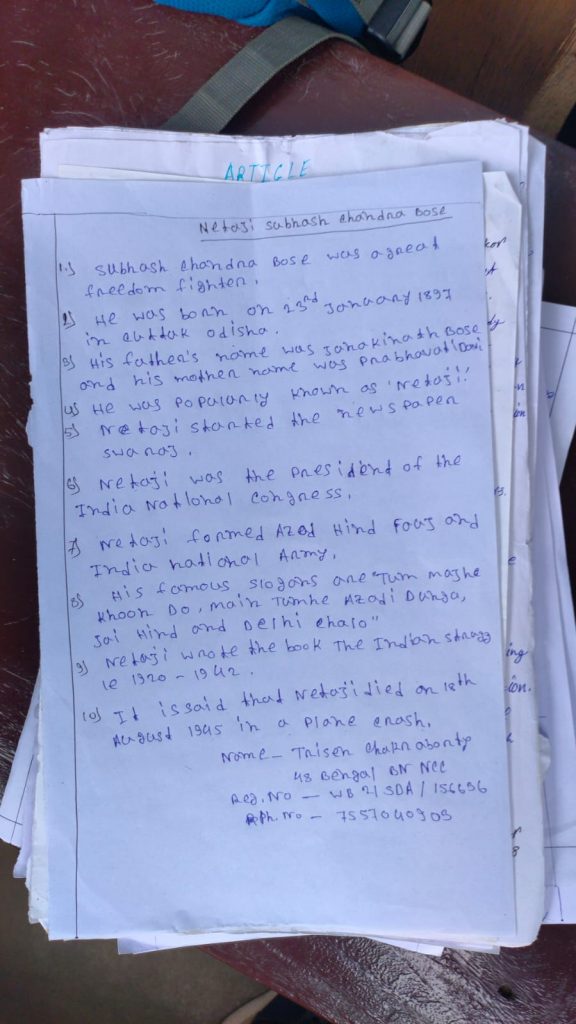 ARTICLE
Netaji Subhash Chandra Bose
1.) Subhash Chandra Bose was a great
freedom fighter.
2) He was born on 23rd January 1897
in Cuttak Odisha.
3) His father's name was Janakinath Bose
and his mother name was Prabhavati Devi
4) He was Popularly known as 'Netaji'.
5) Netaji started the newspaper
Swaraj.
6) Netaji was the President of the
India National Congress.
7) Netaji formed Azad Hind Fouj and
India national Army.
8) His famous slogans are "Tum majhe
khoon Do, main Tumhe Azadi Dunga,
Jai Hind and Delhi Chalo"
9) Netaji wrote the book The Indian strugg
le 1920 - 1942.
10) It is said that Netaji died on 18th
August 1945 in a Plane crash.
Name - Trisen Chakraborty
48 Bengal BN NCC
Reg. No - WB 21 SDA / 156696
Ph. No - 7557040909